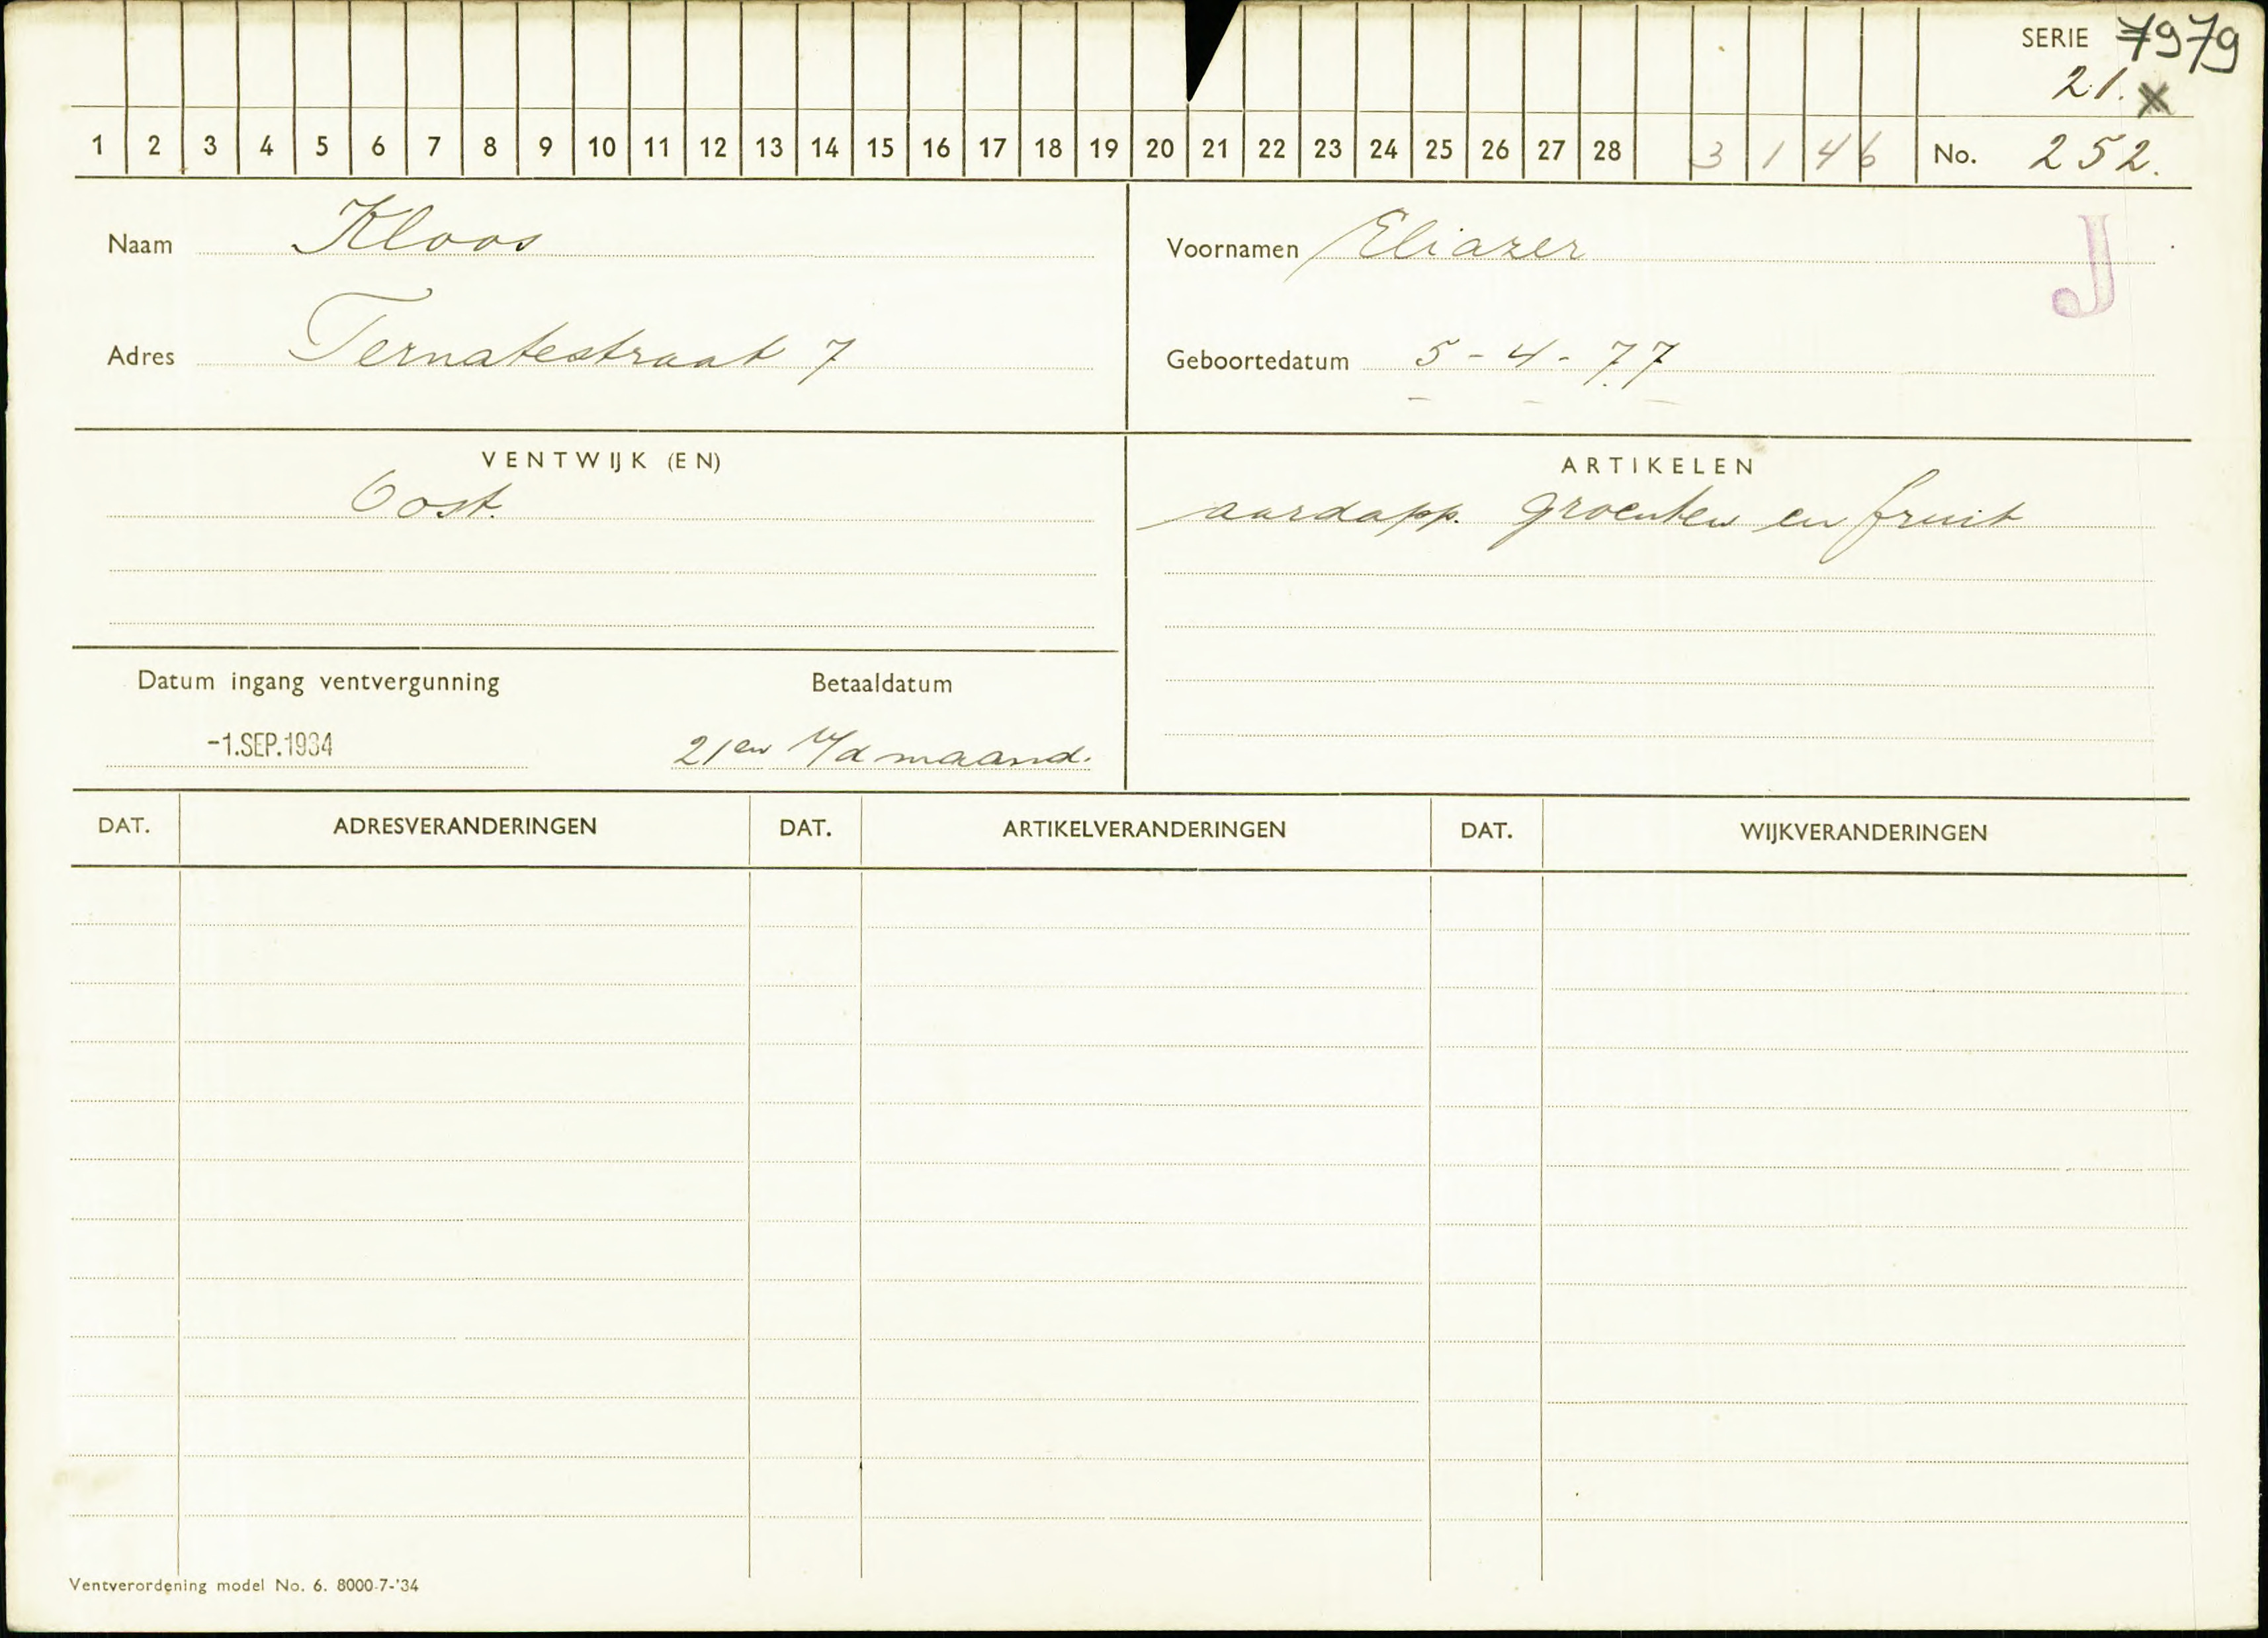 SERIE 7979
21. X
1 2 3 4 5 6 7 8 9 10 11 12 13 14 15 16 17 18 19 20 21 22 23 24 25 26 27 28 3 1 4 6 No. 252.
Naam Kloos Voornamen Eliazer J
Adres Ternatestraat 7 Geboortedatum 5-4-77
VENTWIJK (EN) ARTIKELEN
Oost. aardapp. groenten en fruit
Datum ingang ventvergunning Betaaldatum
-1.SEP.1934 21en v/d maand.
DAT. ADRESVERANDERINGEN DAT. ARTIKELVERANDERINGEN DAT. WIJKVERANDERINGEN
Ventverordening model No. 6. 8000-7-'34